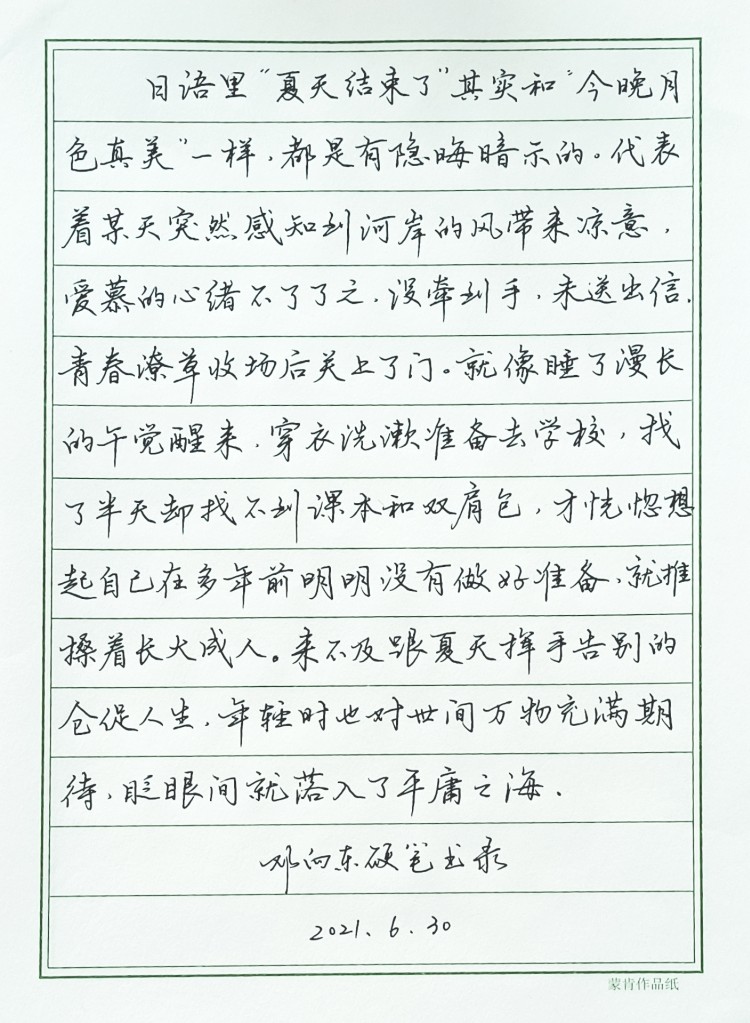 日语里“夏天结束了”其实和“今晚月
色真美”一样，都是有隐晦暗示的。代表
着某天突然感知到河岸的风带来凉意，
爱慕的心绪不了了之，没牵到手，未送出信.
青春潦草收场后关上了门。就像睡了漫长
的午觉醒来，穿衣洗漱准备去学校，找
了半天却找不到课本和双肩包，才恍惚想
起自己在多年前明明没有做好准备，就推
搡着长大成人。来不及跟夏天挥手告别的
仓促人生，年轻时也对世间万物充满期
待，眨眼间就落入了平庸之海.
邓向东硬笔书录
2021.6.30
蒙肯作品纸